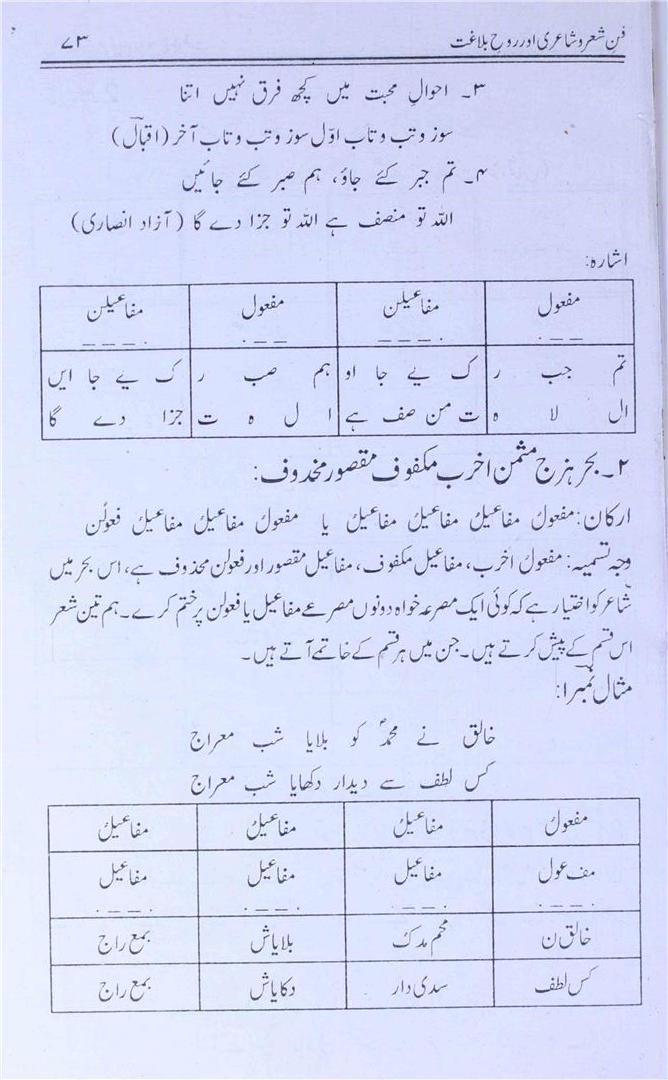 فنِ شعر و شاعری اور روحِ بلاغت ۷۳
۳۔ احوالِ محبت میں کچھ فرق نہیں اتنا
سوز و تب و تاب اوّل سوز و تب و تاب آخر (اقبالؔ)
۴۔ تم جبر کئے جاؤ، ہم صبر کئے جائیں
اللہ تو منصف ہے اللہ تو جزا دے گا (آزاد انصاری)
اشارہ:
مفعول مفاعیلن مفعول مفاعیلن
۔ — — — — — ۔ ۔ — — — — — ۔
تم جب ر ک یے جا او ہم صب ر ک یے جا ایں
ال لا ہ ت من صف ہے ا ل ہ ت جزا دے گا
۲۔ بحر ہزج مثمن اخرب مکفوف مقصور محذوف:
ارکان: مفعولُ مفاعیلُ مفاعیلُ مفاعیلُ یا مفعولُ مفاعیلُ مفاعیلُ فعولُن
وجہ تسمیہ: مفعولُ اخرب، مفاعیل مکفوف، مفاعیل مقصور اور فعولن محذوف ہے، اس بحر میں
شاعر کو اختیار ہے کہ کوئی ایک مصرعہ خواہ دونوں مصرعے مفاعیل یا فعولن پر ختم کرے۔ ہم تین شعر
اس قسم کے پیش کرتے ہیں۔ جن میں ہر قسم کے خاتمے آتے ہیں۔
مثال نمبرا:
خالق نے محمدؐ کو بلایا شب معراج
کس لطف سے دیدار دکھایا شب معراج
مفعولُ مفاعیلُ مفاعیلُ مفاعیلُ
مف عول مفاعیل مفاعیل مفاعیل
۔ — — ۔ — — ۔ ۔ — — ۔ ۔ — — ۔
خالق ن محم مدک بلایاش بمع راج
کس لطف سدی دار دکایاش بمع راج